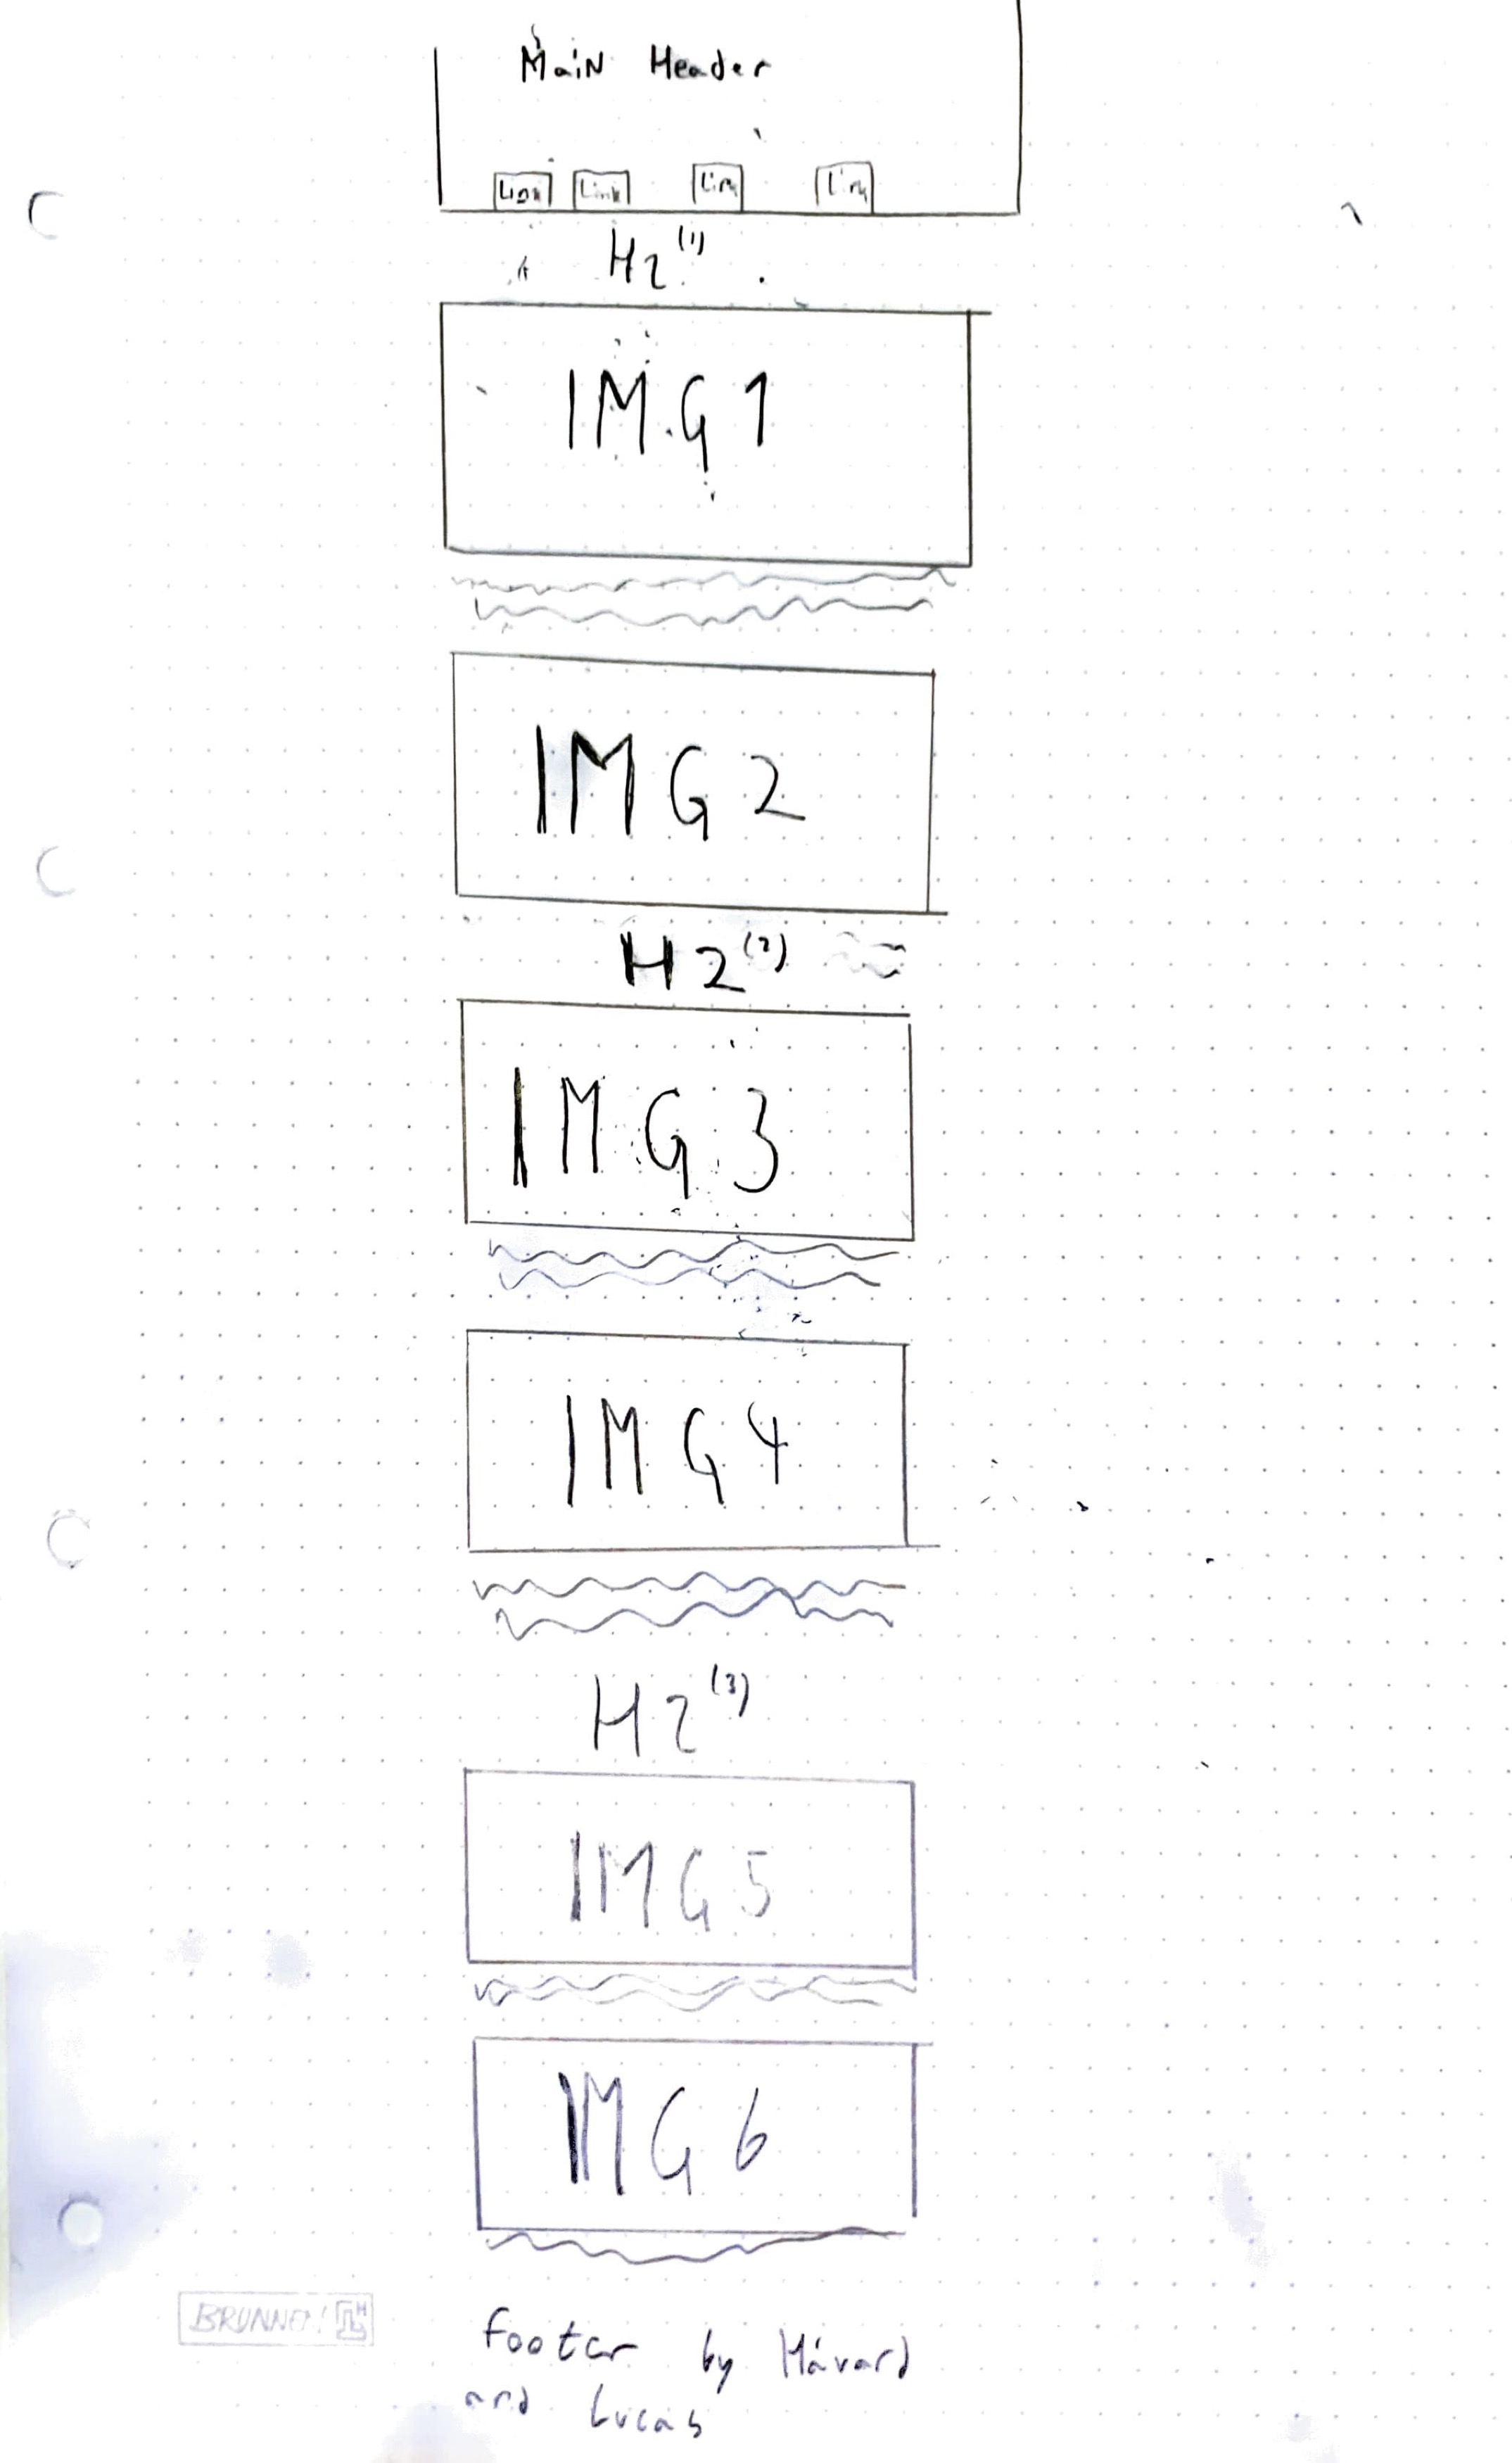 Main Header
Link Link Link Link
H2 (1)
IMG1
IMG2
H2 (2)
IMG3
IMG4
H2 (3)
IMG5
IMG6
BRUNNEN
footer by Håvard
and Lucas